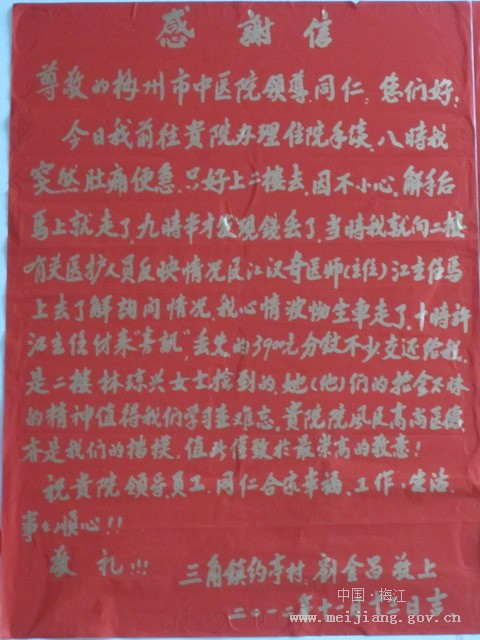 感謝信
尊敬的梅州市中医院领导、同仁：您们好！
今日我前往貴院办理住院手续，八時我
突然肚痛便急，只好上二楼去，因不小心，解手后
馬上就走了，九時半才发现錢丢了，当時我就向二楼
有关医护人员反映情况及江汉奇医师（主任）江主任馬
上去了解詢问情况，我心情波物生車走了，十時許
江主任付来"喜訊"，丢失的3900元分钱不少支还给我，
是二楼林琼兴女士捡到的，她（他）们的拾金不昧
的精神值得我们学习並难忘，貴院院风及高尚医德，
亦是我们的楷模，值此僅致於最崇高的敬意！
祝貴院领导、员工、同仁合家幸福、工作、生活、
事々顺心！！
敬礼！！！
三角鎮约亭村：劉金昌敬上
二〇一二年十二月十三日吉
中国·梅江
www.meijiang.gov.cn